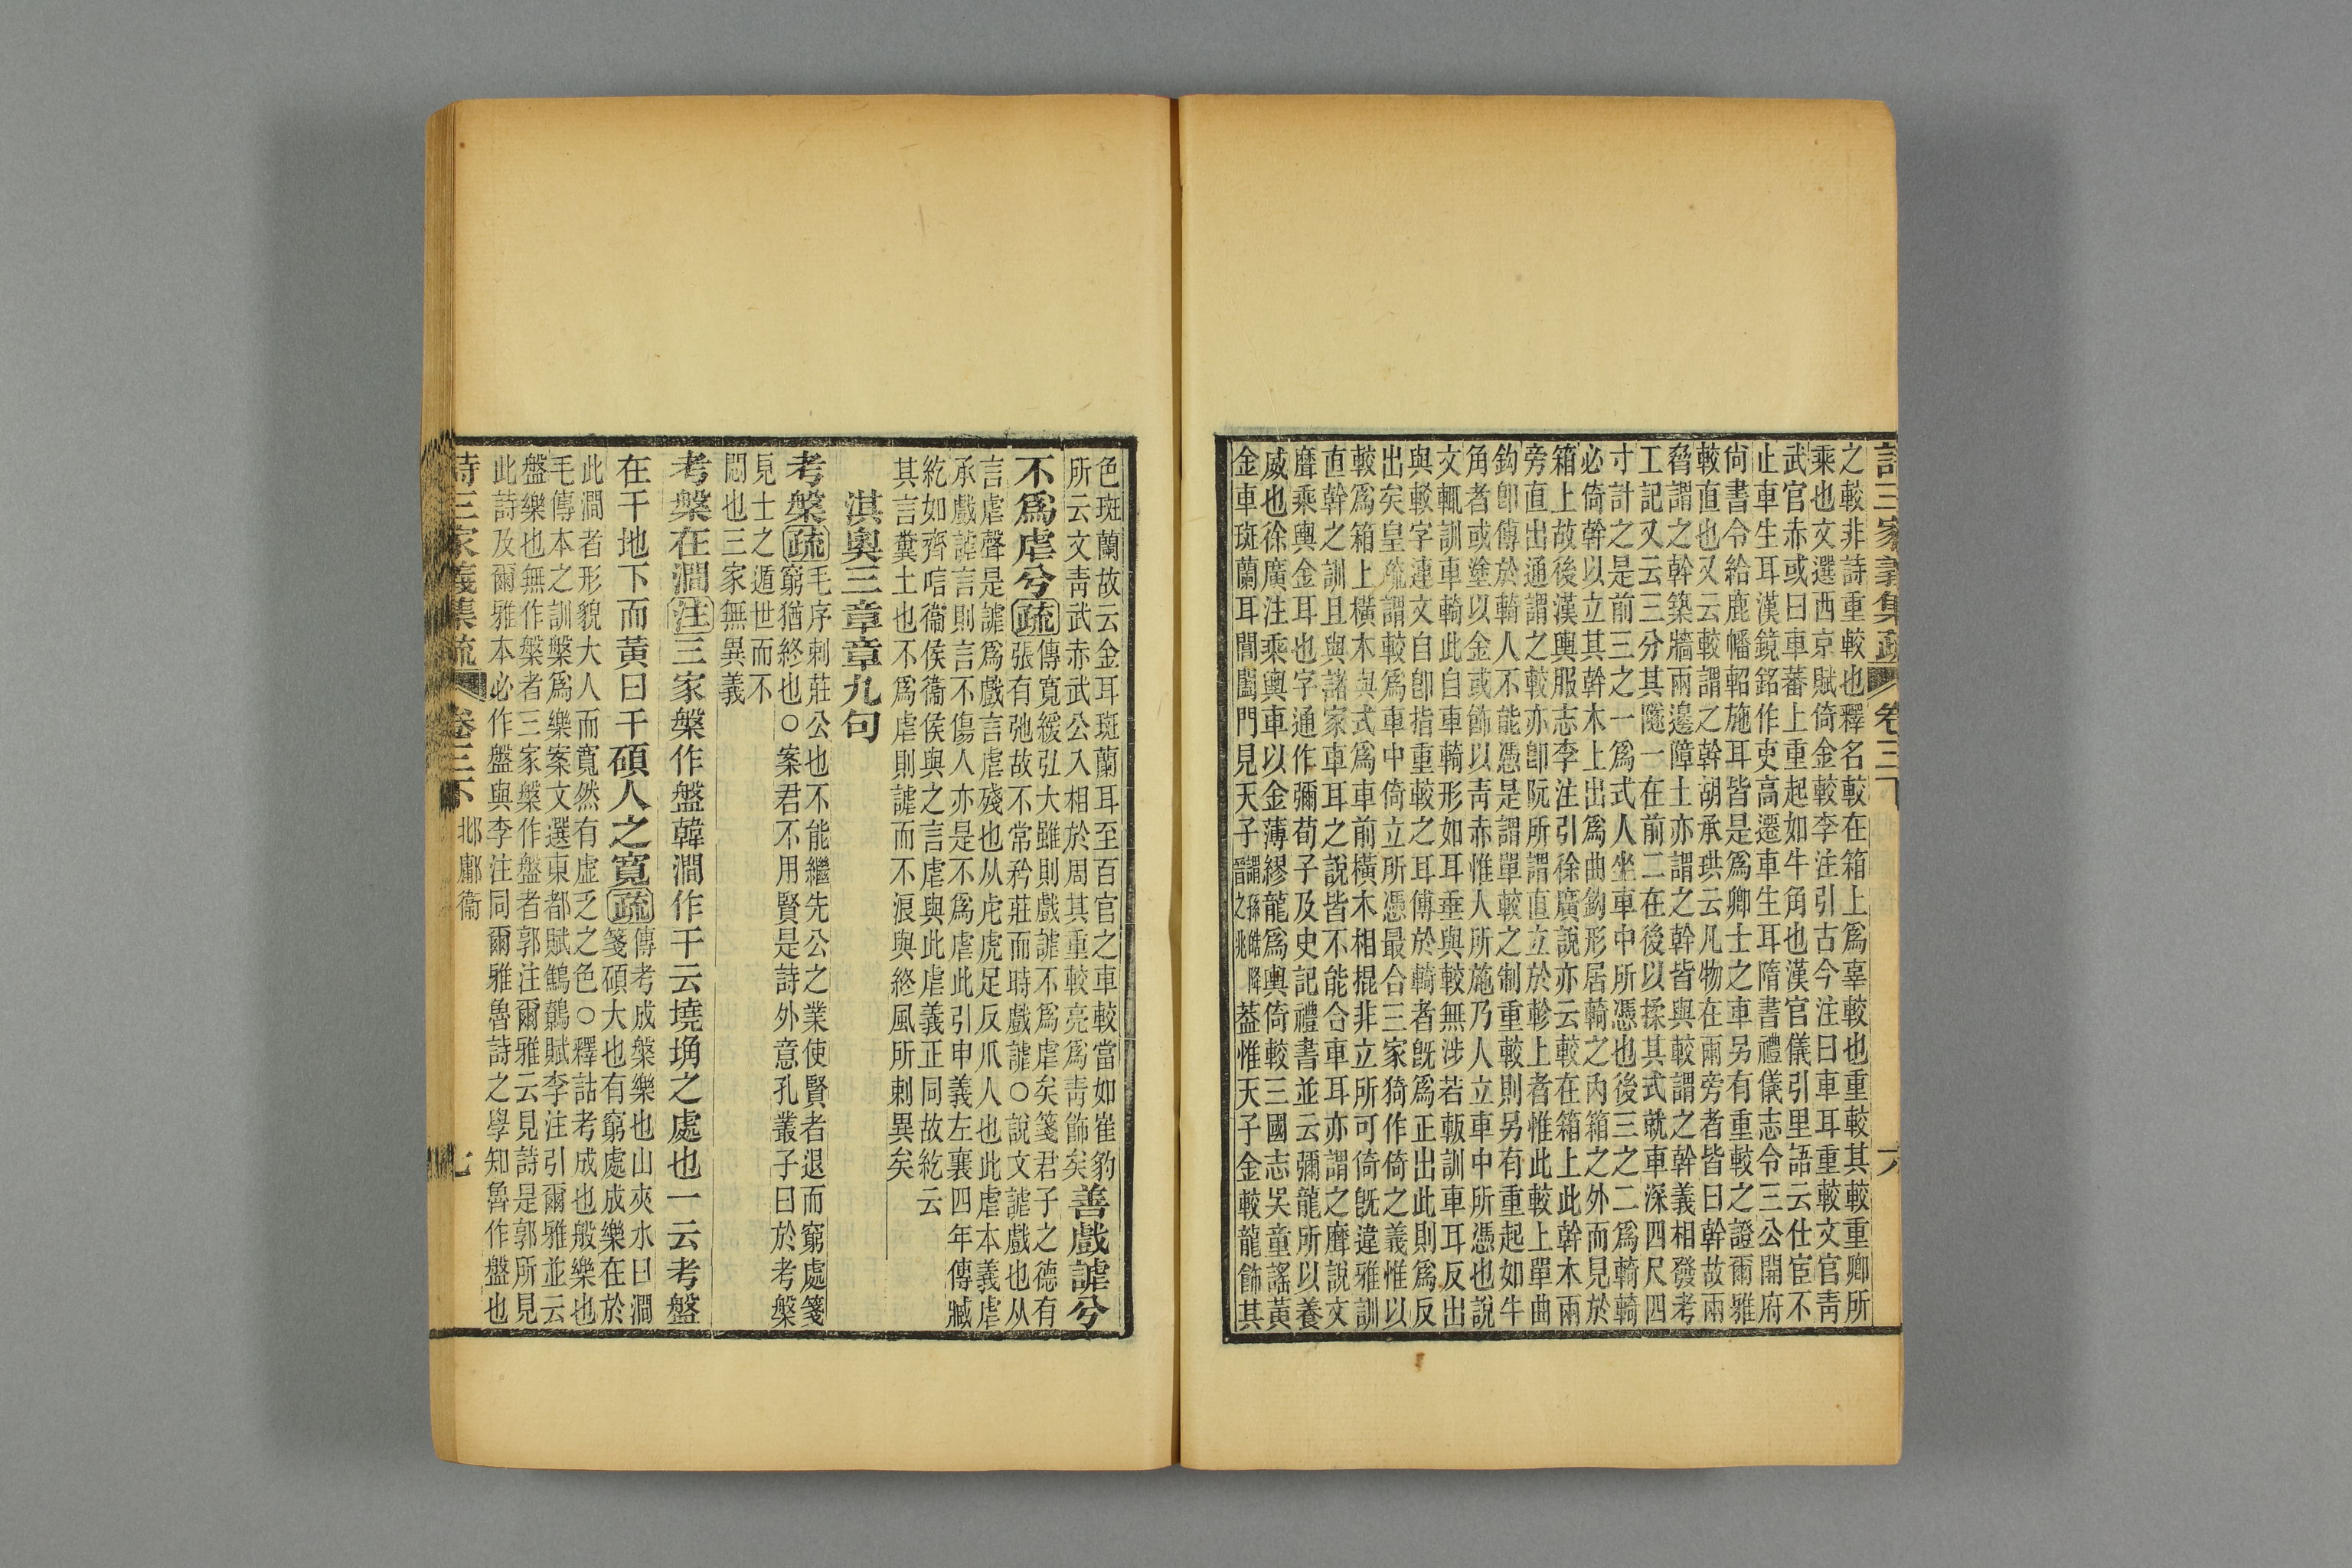 詩三家義集疏 卷三下 六
之較非詩重較也釋名較在箱上爲辜較也重較其較重卿所
乘也文選西京賦倚金較李注引古今注曰車耳重較文官靑
武官赤或曰車蕃上重起如牛角也漢官儀引里語云仕宦不
止車生耳漢鏡銘作吏高遷車生耳隋書禮儀志令三公開府
尙書令給鹿幡軺施耳皆是爲卿士之車另有重較之證爾雅
較直也又云較謂之幹胡承珙云凡物在兩旁者皆曰幹故兩
脅謂之幹築牆兩邊障土亦謂之幹皆與較謂之幹義相發考
工記又云三分其隧一在前二在後以揉其式就車深四尺四
寸計之是前三之一爲式人坐車中所憑也後三之二爲輢輢
必倚幹以立其幹木上出爲曲鉤形居輢之內箱之外而見於
箱上故後漢輿服志李注引徐廣說亦云較在箱上此幹木兩
旁直出通謂之較亦卽阮所謂直立於軫上者惟此較上單曲
鈎卽傳於輢人不能憑是謂單較之制重較則另有重起如牛
角者或塗以金或飾以靑赤惟人所施乃人立車中所憑也說
文輒訓車輢此自車輢形如耳垂與較無涉若軓訓車耳反出
與較字連文自卽指重較之耳傅於輢者旣爲正出此則爲反
出矣皇疏謂較爲車中倚立所憑最合三家猗作倚之義惟以
較爲箱上橫木與式爲車前橫木相掍非立所可倚旣違雅訓
直幹之訓且與諸家車耳之說皆不能合車耳亦謂之䡾說文
䡾乘輿金耳也字通作彌荀子及史記禮書並云彌龍所以養
威也徐廣注乘輿車以金薄繆龍爲輿倚較三國志吳童謠黃
金車斑蘭耳闓閶門見天子謂孫皓降晉之兆葢惟天子金較龍飾其
色斑蘭故云金耳斑蘭耳至百官之車較當如崔豹
所云文靑武赤武公入相於周其重較亮爲靑飾矣善戲謔兮
不爲虐兮疏傳寬緩弘大雖則戲謔不爲虐矣箋君子之德有
張有弛故不常矜莊而時戲謔○說文謔戲也从
言虐聲是謔爲戲言虐殘也从虍虎足反爪人也此虐本義虐
承戲謔言則言不傷人亦是不爲虐此引申義左襄四年傳臧
紇如齊唁衞侯衞侯與之言虐與此虐義正同故紇云
其言糞土也不爲虐則謔而不浪與終風所刺異矣
淇奧三章章九句
考槃疏毛序刺莊公也不能繼先公之業使賢者退而窮處箋
窮猶終也○案君不用賢是詩外意孔叢子曰於考槃
見士之遁世而不
悶也三家無異義
考槃在澗注三家槃作盤韓澗作干云墝埆之處也一云考盤
在干地下而黃曰干碩人之寬疏傳考成槃樂也山夾水曰澗
箋碩大也有窮處成樂在於
此澗者形貌大人而寬然有虛乏之色○釋詁考成也般樂也
毛傳本之訓槃爲樂案文選東都賦鷦鷯賦李注引爾雅並云
盤樂也無作槃者三家槃作盤者郭注爾雅云見詩是郭所見
此詩及爾雅本必作盤與李注同爾雅魯詩之學知魯作盤也
詩三家義集疏 卷三下 邶鄘衞 七